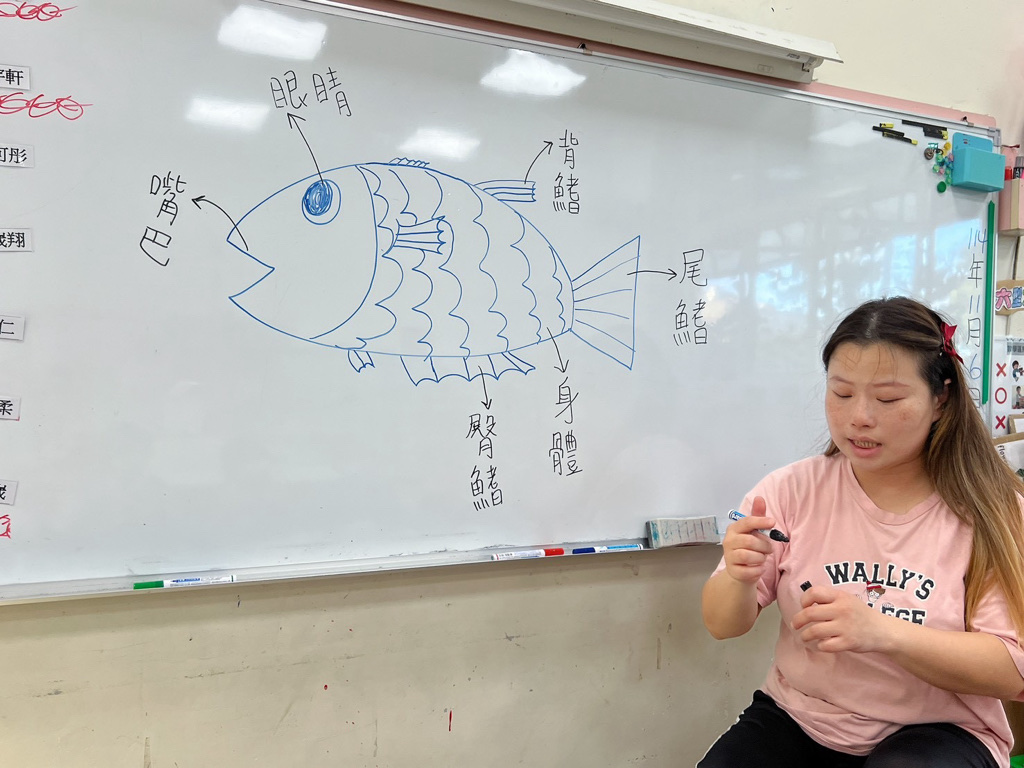 軒
彤
翔
仁
柔
眼睛
嘴巴
背鰭
尾鰭
身體
臀鰭
114年11月6日
WALLY'S